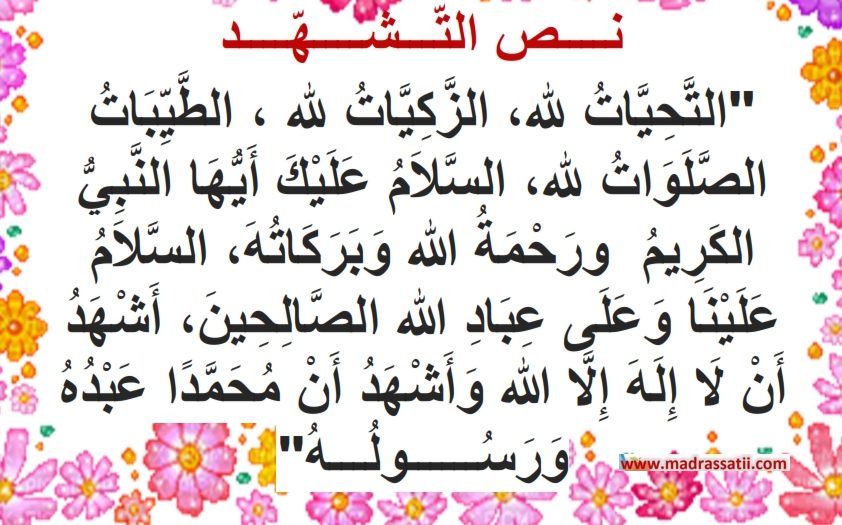 نـــص التّـــشـــهّـــد
"التَّحِيَّاتُ لله، الزَّكِيَّاتُ لله ، الطَّيِّبَاتُ
الصَّلَوَاتُ لله، السَّلاَمُ عَلَيْكَ أَيُّهَا النَّبِيُّ
الكَرِيمُ ورَحْمَةُ الله وَبَرَكَاتُهَ، السَّلاَمُ
عَلَيْنَا وَعَلَى عِبَادِ الله الصَّالِحِينَ، أَشْهَدُ
أَنْ لَا إِلَهَ إِلَّا الله وَأَشْهَدُ أَنْ مُحَمَّدًا عَبْدُهُ
وَرَسُـــــولُـــهُ"
www.madrassatii.com